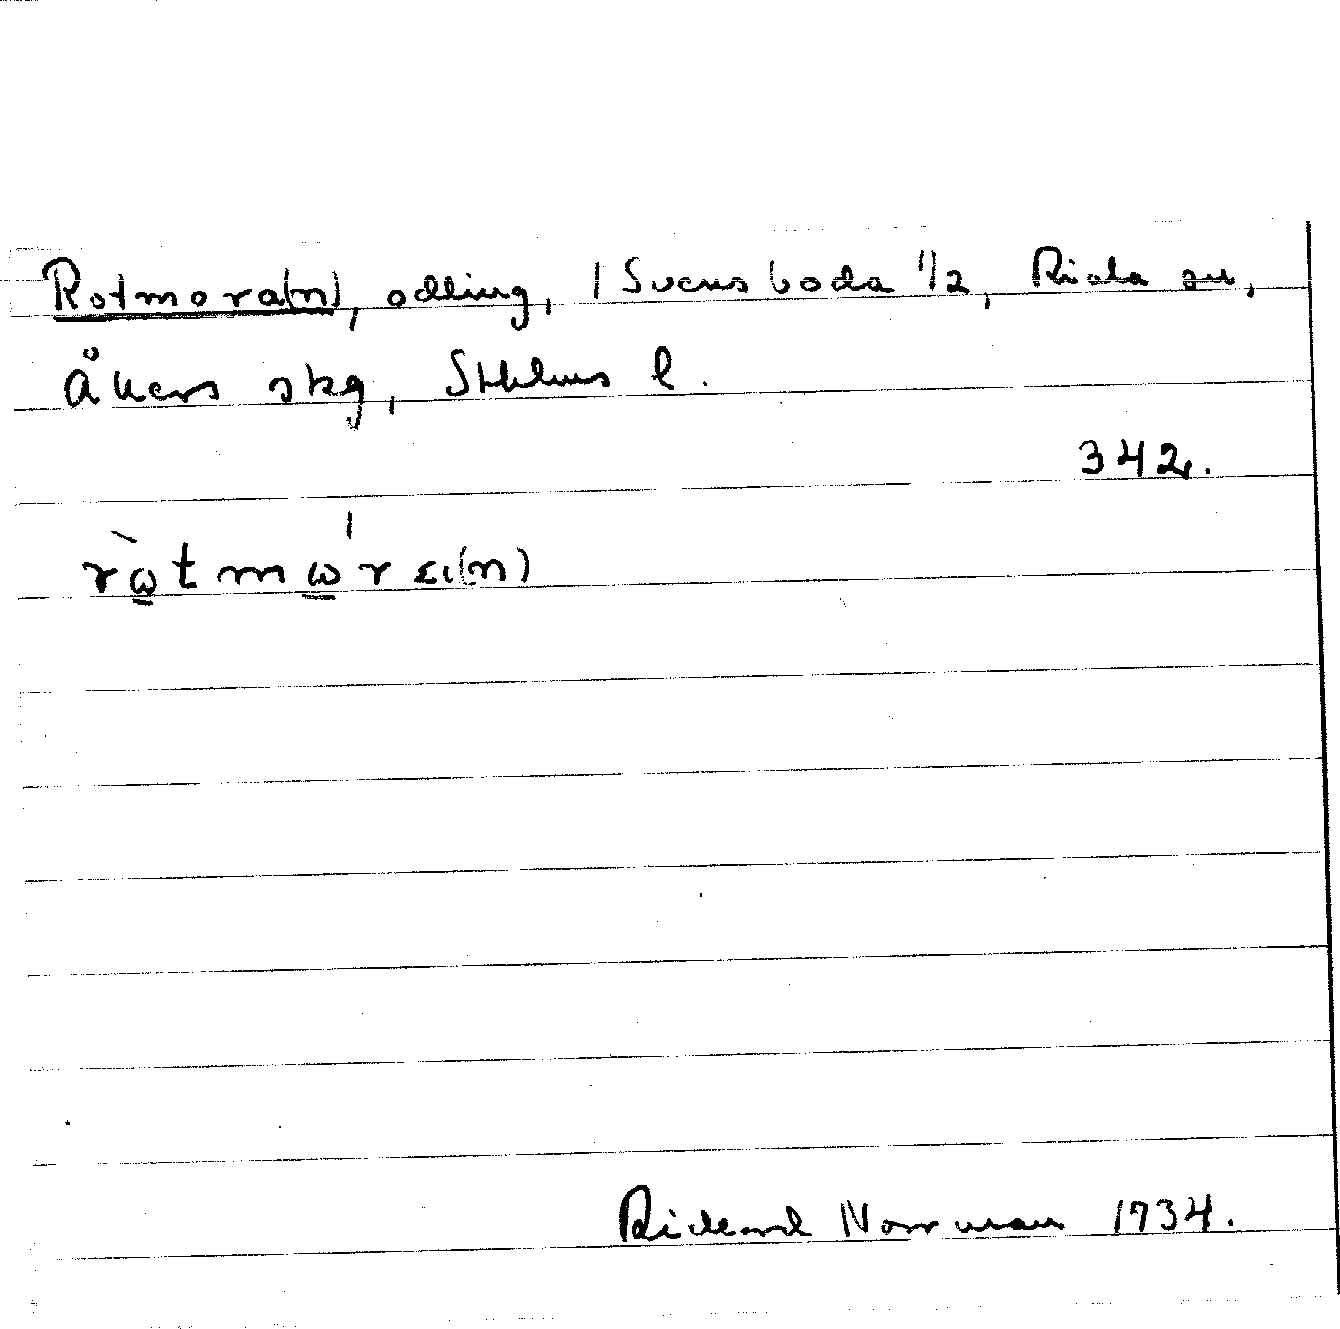 Rotmora(n), odling, 1 Svensboda 1/2, Riala sn,
Åkers skg, Sthlms l.
342.
rὼtmω'ra(n)
Rickard Norrman 1934.